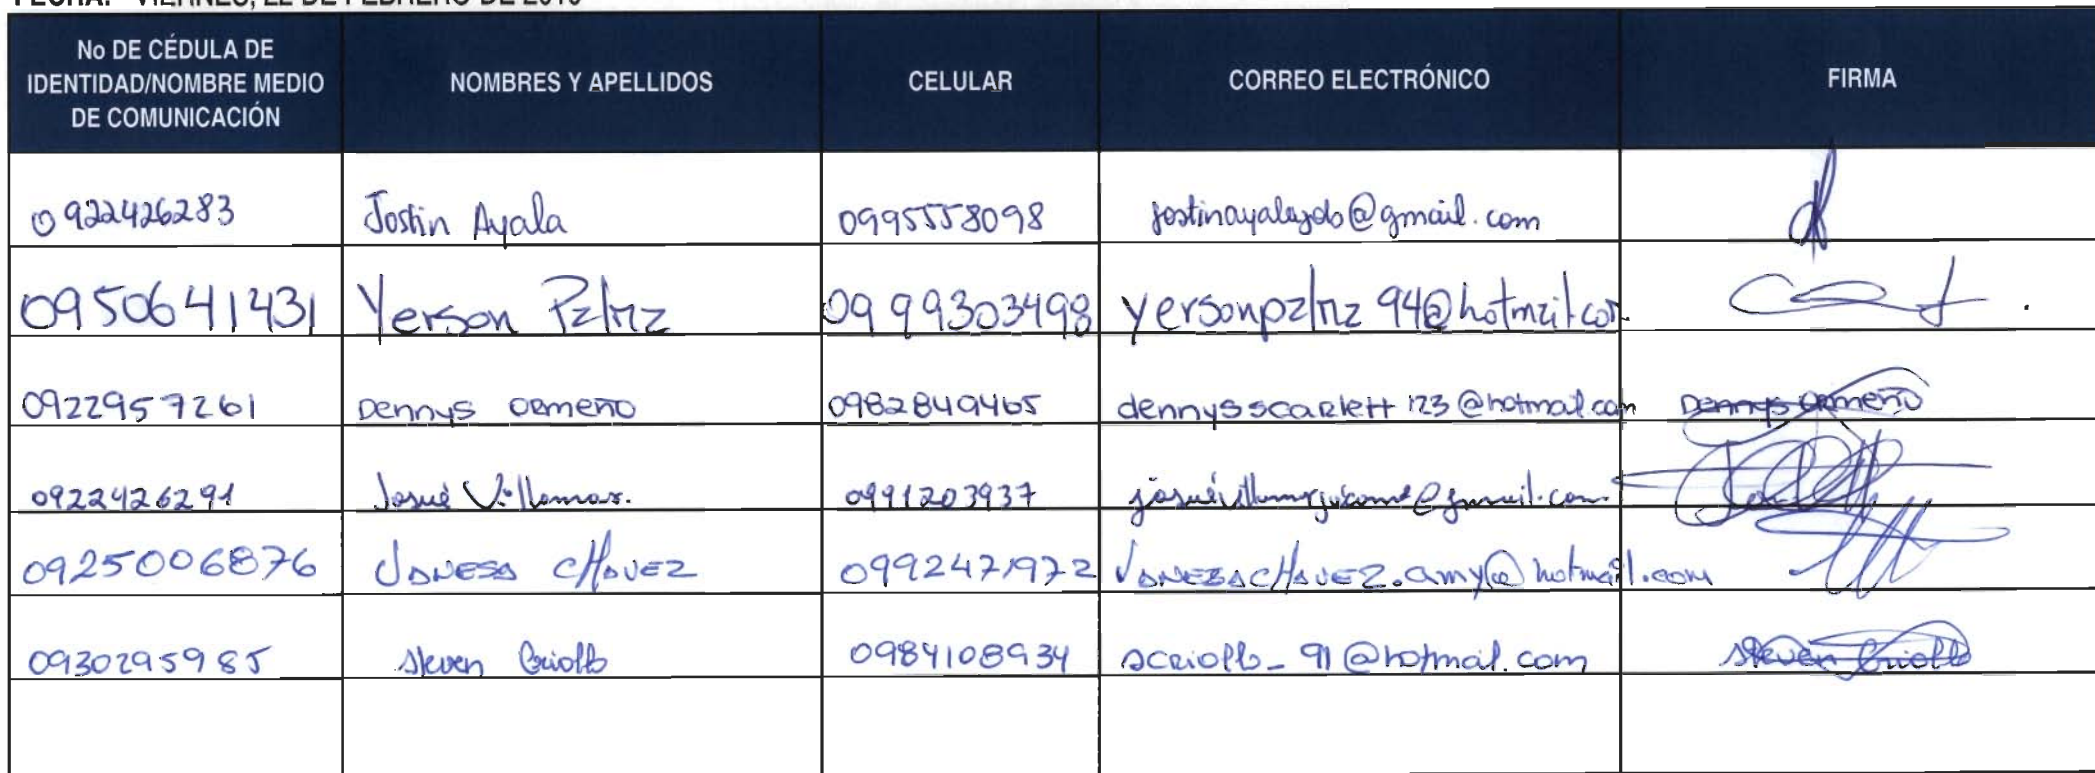 FECHA: VIERNES, 22 DE FEBRERO DE 2019
No DE CÉDULA DE
IDENTIDAD/NOMBRE MEDIO
DE COMUNICACIÓN
NOMBRES Y APELLIDOS
CELULAR
CORREO ELECTRÓNICO
FIRMA
0922426283 Jostin Ayala 0995558098 @gmail.com
0950641431 Yerson Palma 0999303498 yersonpalma94@hotmail.com
0922957261 Dennys Ormeño 0982849465 dennysscarlett123@hotmail.com Dennys Ormeño
0922426291 Josué Villamar. 0991203937 @gmail.com
0925006876 VANESA CHAVEZ 0992471972 VANEZACHAVEZ.amy@hotmail.com
0930295985 Steven Criollo 0984108934 scriollo_91@hotmail.com Steven Criollo